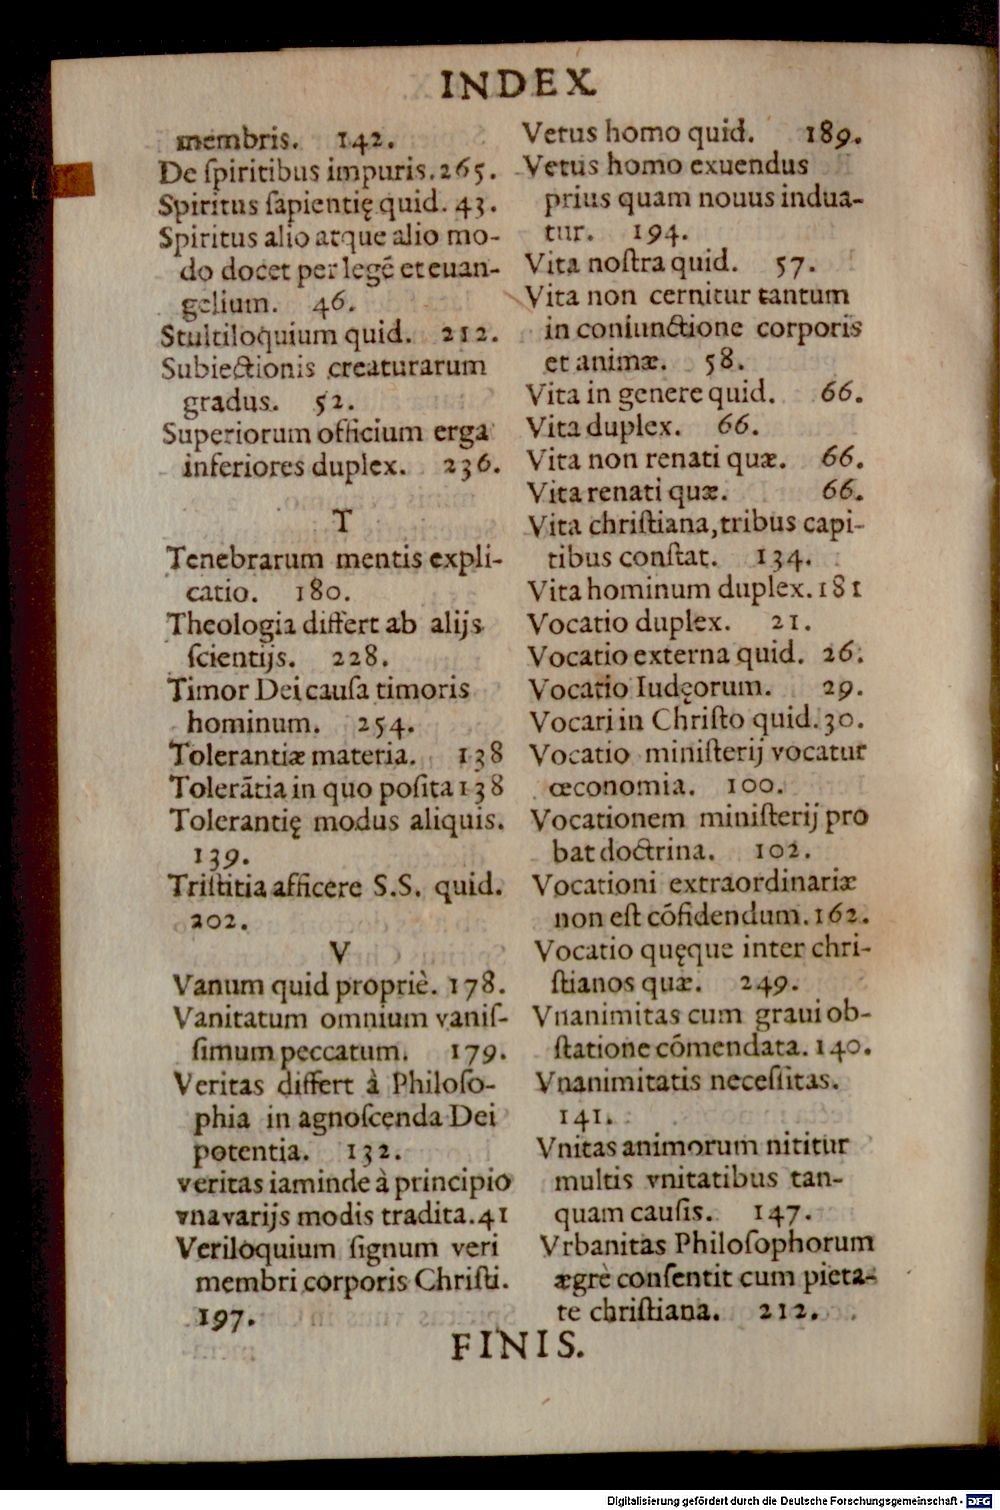 INDEX.
membris. 142.
De ſpiritibus impuris.265.
Spiritus ſapientię quid. 43.
Spiritus alio atque alio mo-
do docet per legē et euan-
gelium. 46.
Stultiloquium quid. 212.
Subiectionis creaturarum
gradus. 52.
Superiorum officium erga
inferiores duplex. 236.
T
Tenebrarum mentis expli-
catio. 180.
Theologia differt ab alijs
ſcientijs. 228.
Timor Dei cauſa timoris
hominum. 254.
Tolerantiæ materia. 138
Tolerātia in quo poſita 138
Tolerantię modus aliquis.
139.
Triſtitia afficere S.S. quid.
202.
V
Vanum quid propriè. 178.
Vanitatum omnium vaniſ-
ſimum peccatum. 179.
Veritas differt à Philoſo-
phia in agnoſcenda Dei
potentia. 132.
veritas iam inde à principio
vna varijs modis tradita.41
Veriloquium ſignum veri
membri corporis Chriſti.
197.
Vetus homo quid. 189.
Vetus homo exuendus
prius quam nouus indua-
tur. 194.
Vita noſtra quid. 57.
Vita non cernitur tantum
in coniunctione corporis
et animæ. 58.
Vita in genere quid. 66.
Vita duplex. 66.
Vita non renati quæ. 66.
Vita renati quæ. 66.
Vita chriſtiana, tribus capi-
tibus conſtat. 134.
Vita hominum duplex.181
Vocatio duplex. 21.
Vocatio externa quid. 26.
Vocatio Iudęorum. 29.
Vocari in Chriſto quid.30.
Vocatio miniſterij vocatur
œconomia. 100.
Vocationem miniſterij pro
bat doctrina. 102.
Vocationi extraordinariæ
non eſt cōfidendum.162.
Vocatio quęque inter chri-
ſtianos quæ. 249.
Vnanimitas cum graui ob-
ſtatione cōmendata.140.
Vnanimitatis neceſſitas.
141.
Vnitas animorum nititur
multis vnitatibus tan-
quam cauſis. 147.
Vrbanitas Philoſophorum
ægrè conſentit cum pieta-
te chriſtiana. 212.
FINIS.
Digitalisierung gefördert durch die Deutsche Forschungsgemeinschaft - DFG